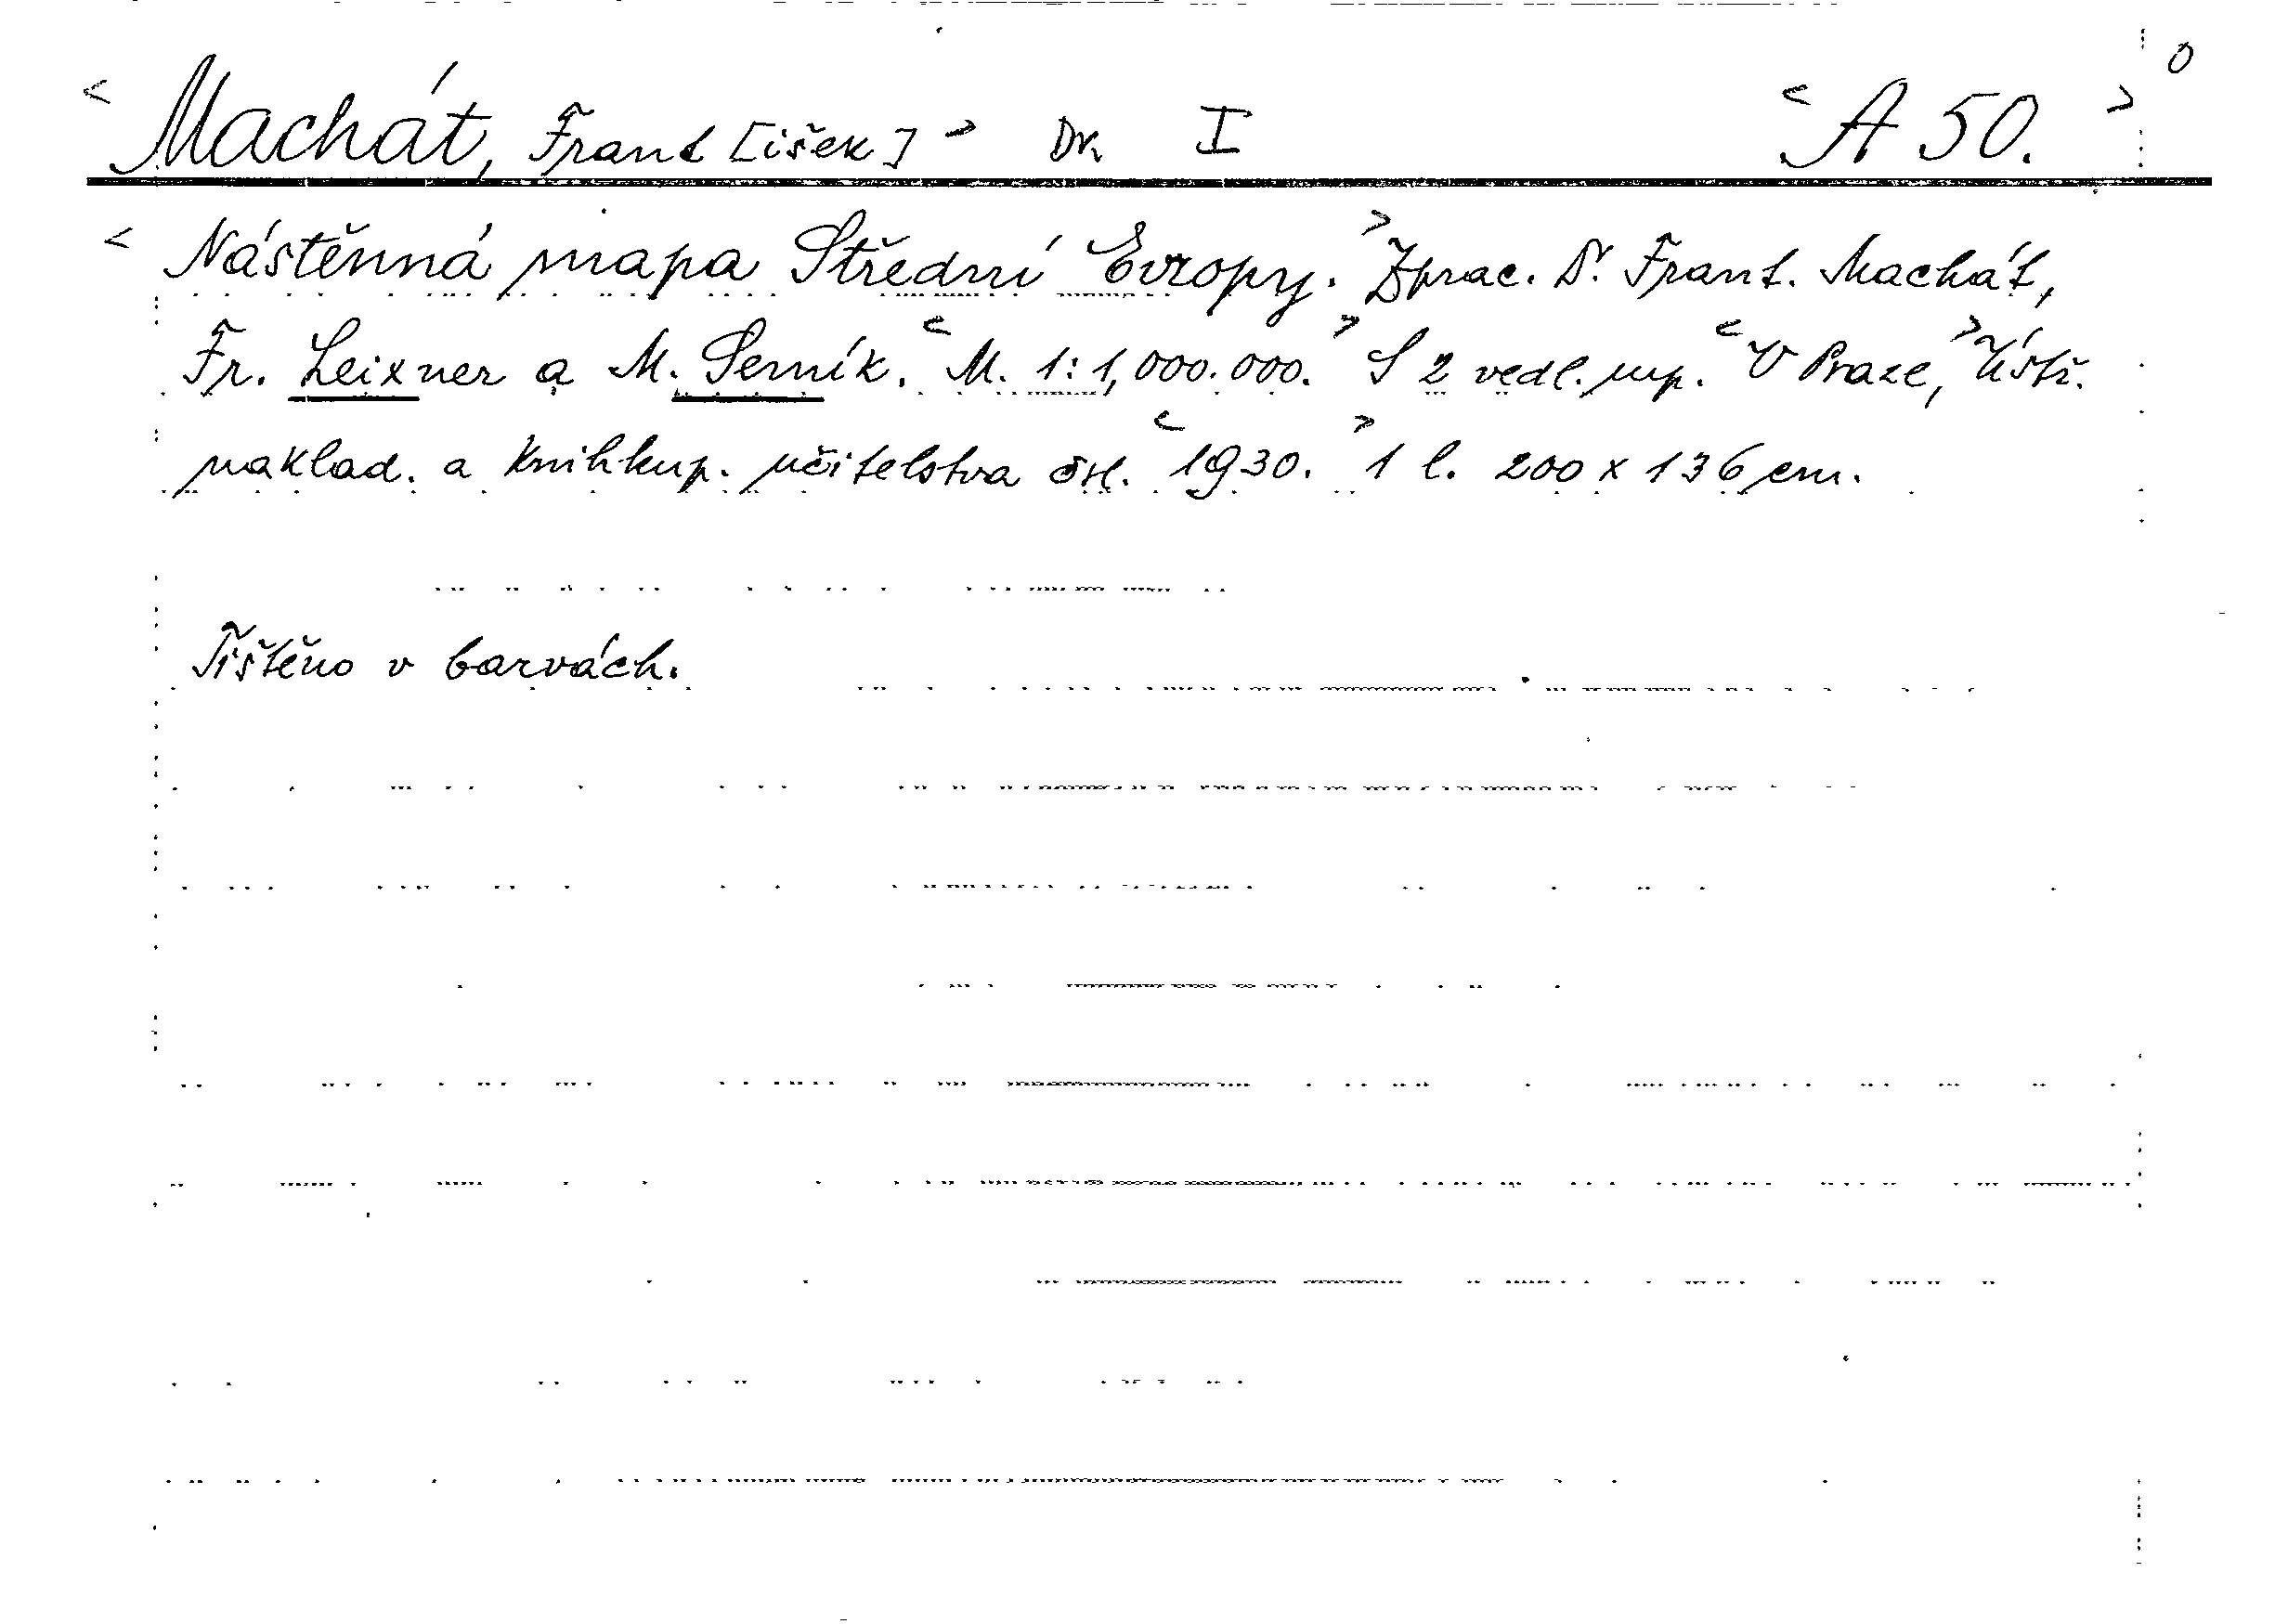 < Machát, Frant[išek] > Dr. I < A 50. > 0
< Nástěnná mapa Střední Evropy. > Zprac. Dr. Frant. Machát,
Fr. Leixner a M. Semík. < M. 1:1,000.000. > S 2 vedl. mp. < V Praze, > Ústř.
naklad. a knihkup. učitelstva čsl. < 1930. > 1 l. 200 x 136 cm.
Tištěno v barvách.